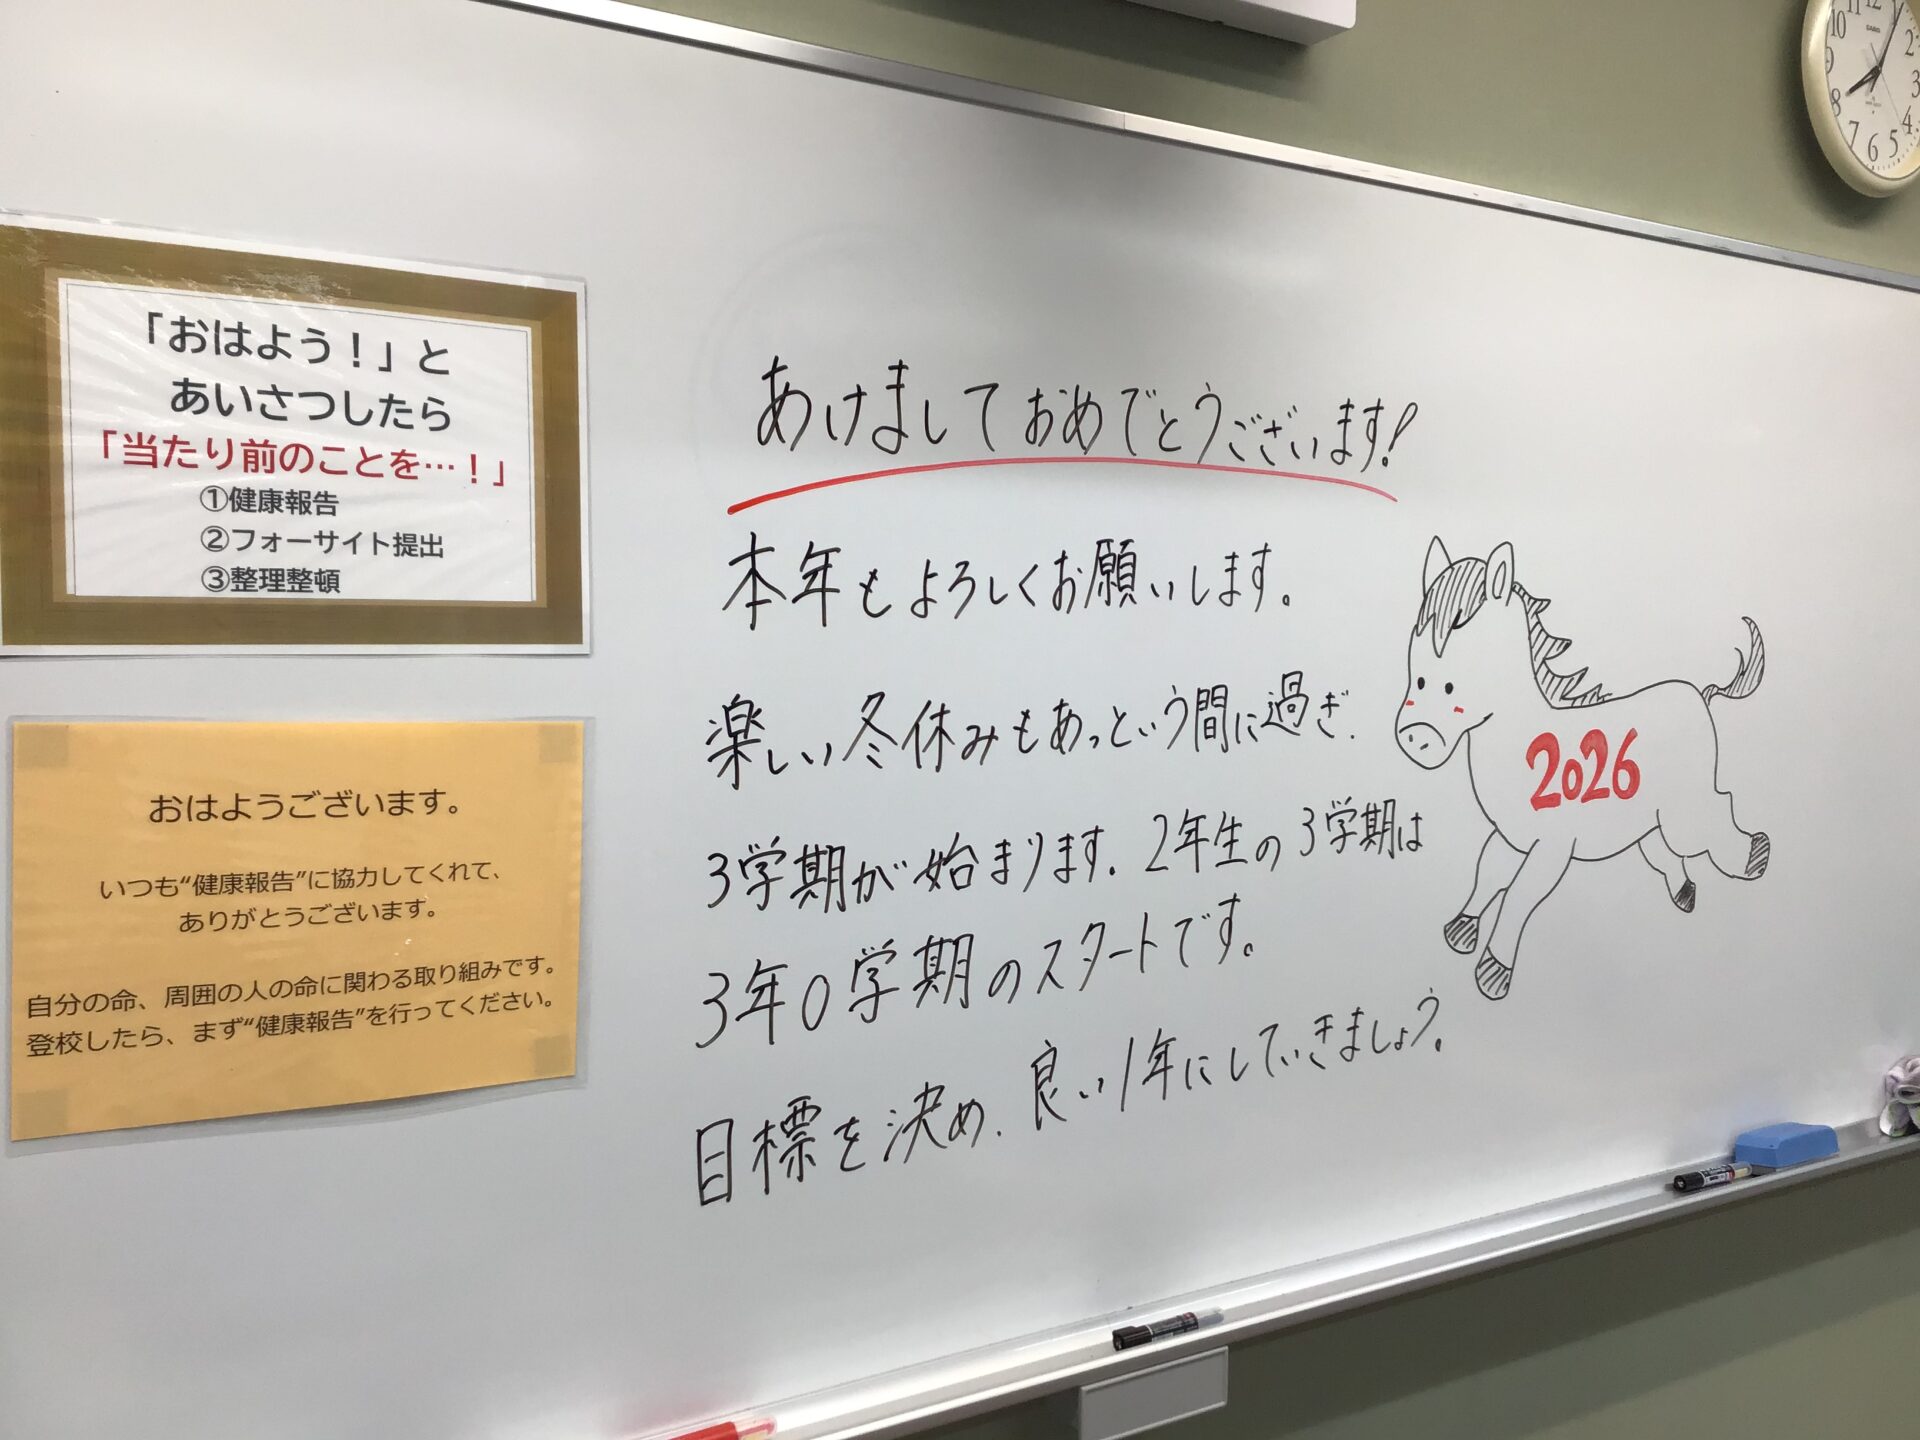 「おはよう！」と
あいさつしたら
「当たり前のことを…！」
①健康報告
②フォーサイト提出
③整理整頓
おはようございます。
いつも“健康報告”に協力してくれて、
ありがとうございます。
自分の命、周囲の人の命に関わる取り組みです。
登校したら、まず“健康報告”を行ってください。
あけましておめでとうございます!
本年もよろしくお願いします。
楽しい冬休みもあっという間に過ぎ、
3学期が始まります。2年生の3学期は
3年0学期のスタートです。
目標を決め、良い1年にしていきましょう。
2026
10 11 12 1 2 3 4 5 6 7 8 9